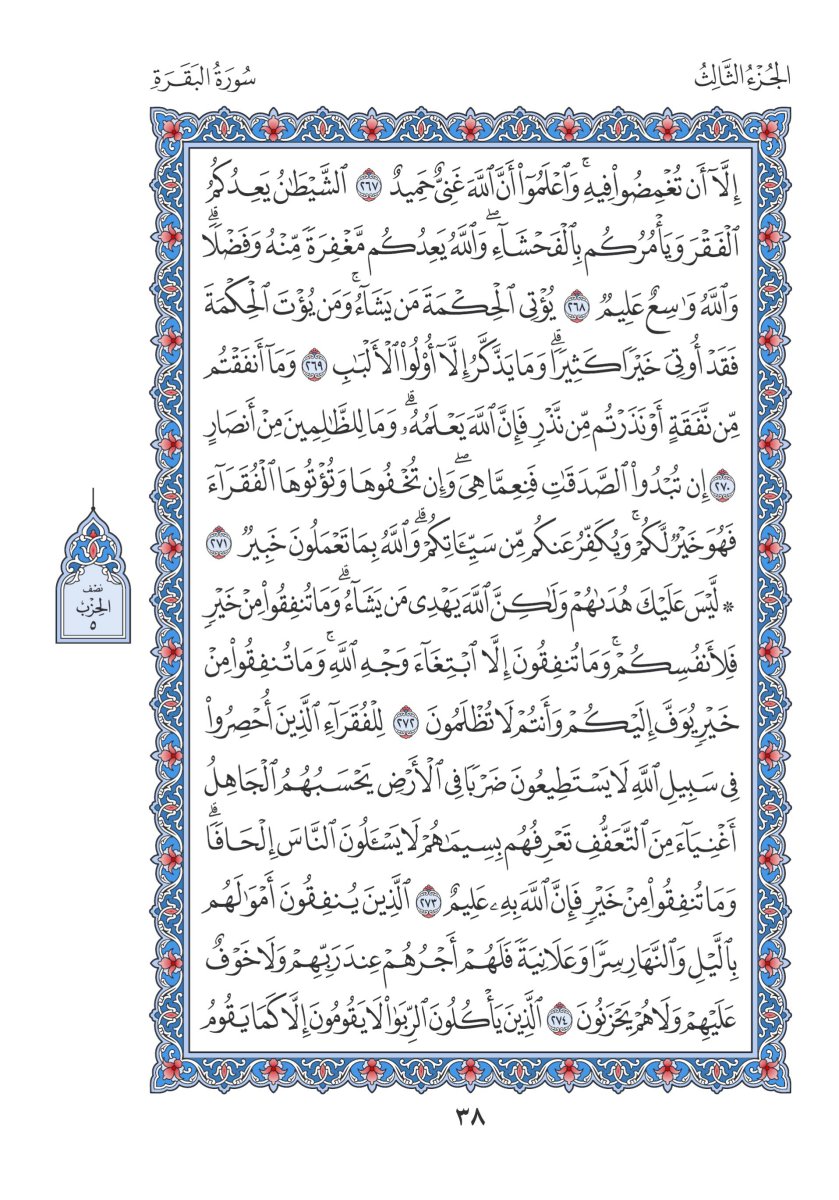 الجُزْءُ الثَّالِثُ
سُورَةُ البَقَرَةِ
إِلَّآ أَن تُغْمِضُوا۟ فِيهِ ۚ وَٱعْلَمُوٓا۟ أَنَّ ٱللَّهَ غَنِىٌّ حَمِيدٌ ٢٦٧ ٱلشَّيْطَـٰنُ يَعِدُكُمُ
ٱلْفَقْرَ وَيَأْمُرُكُم بِٱلْفَحْشَآءِ ۖ وَٱللَّهُ يَعِدُكُم مَّغْفِرَةً مِّنْهُ وَفَضْلًا ۗ
وَٱللَّهُ وَٰسِعٌ عَلِيمٌ ٢٦٨ يُؤْتِى ٱلْحِكْمَةَ مَن يَشَآءُ ۚ وَمَن يُؤْتَ ٱلْحِكْمَةَ
فَقَدْ أُوتِىَ خَيْرًا كَثِيرًا ۗ وَمَا يَذَّكَّرُ إِلَّآ أُو۟لُوا۟ ٱلْأَلْبَـٰبِ ٢٦٩ وَمَآ أَنفَقْتُم
مِّن نَّفَقَةٍ أَوْ نَذَرْتُم مِّن نَّذْرٍ فَإِنَّ ٱللَّهَ يَعْلَمُهُۥ ۗ وَمَا لِلظَّـٰلِمِينَ مِنْ أَنصَارٍ
٢٧٠ إِن تُبْدُوا۟ ٱلصَّدَقَـٰتِ فَنِعِمَّا هِىَ ۖ وَإِن تُخْفُوهَا وَتُؤْتُوهَا ٱلْفُقَرَآءَ
فَهُوَ خَيْرٌ لَّكُمْ ۚ وَيُكَفِّرُ عَنكُم مِّن سَيِّـَٔاتِكُمْ ۗ وَٱللَّهُ بِمَا تَعْمَلُونَ خَبِيرٌ ٢٧١
* لَّيْسَ عَلَيْكَ هُدَىٰهُمْ وَلَـٰكِنَّ ٱللَّهَ يَهْدِى مَن يَشَآءُ ۗ وَمَا تُنفِقُوا۟ مِنْ خَيْرٍ
فَلِأَنفُسِكُمْ ۚ وَمَا تُنفِقُونَ إِلَّا ٱبْتِغَآءَ وَجْهِ ٱللَّهِ ۚ وَمَا تُنفِقُوا۟ مِنْ
خَيْرٍ يُوَفَّ إِلَيْكُمْ وَأَنتُمْ لَا تُظْلَمُونَ ٢٧٢ لِلْفُقَرَآءِ ٱلَّذِينَ أُحْصِرُوا۟
فِى سَبِيلِ ٱللَّهِ لَا يَسْتَطِيعُونَ ضَرْبًا فِى ٱلْأَرْضِ يَحْسَبُهُمُ ٱلْجَاهِلُ
أَغْنِيَآءَ مِنَ ٱلتَّعَفُّفِ تَعْرِفُهُم بِسِيمَـٰهُمْ لَا يَسْـَٔلُونَ ٱلنَّاسَ إِلْحَافًا ۗ
وَمَا تُنفِقُوا۟ مِنْ خَيْرٍ فَإِنَّ ٱللَّهَ بِهِۦ عَلِيمٌ ٢٧٣ ٱلَّذِينَ يُنفِقُونَ أَمْوَٰلَهُم
بِٱلَّيْلِ وَٱلنَّهَارِ سِرًّا وَعَلَانِيَةً فَلَهُمْ أَجْرُهُمْ عِندَ رَبِّهِمْ وَلَا خَوْفٌ
عَلَيْهِمْ وَلَا هُمْ يَحْزَنُونَ ٢٧٤ ٱلَّذِينَ يَأْكُلُونَ ٱلرِّبَوٰا۟ لَا يَقُومُونَ إِلَّا كَمَا يَقُومُ
نِصْف
الحِزْب
٥
٣٨